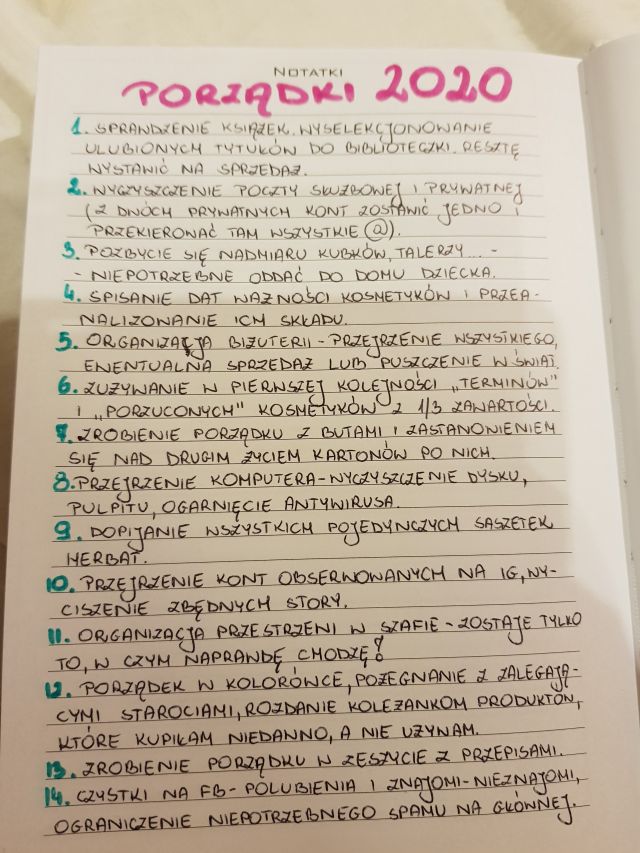 NOTATKI
PORZĄDKI 2020
1. SPRAWDZENIE KSIĄŻEK. WYSELEKCJONOWANIE
ULUBIONYCH TYTUŁÓW DO BIBLIOTECZKI. RESZTĘ
WYSTAWIĆ NA SPRZEDAŻ.
2. WYCZYSZCZENIE POCZTY SŁUŻBOWEJ I PRYWATNEJ
(Z DWÓCH PRYWATNYCH KONT ZOSTAWIĆ JEDNO I
PRZEKIEROWAĆ TAM WSZYSTKIE @).
3. POZBYCIE SIĘ NADMIARU KUBKÓW, TALERZY... -
- NIEPOTRZEBNE ODDAĆ DO DOMU DZIECKA.
4. SPISANIE DAT WAŻNOŚCI KOSMETYKÓW I PRZEA-
NALIZOWANIE ICH SKŁADU.
5. ORGANIZACJA BIŻUTERII - PRZEJRZENIE WSZYSTKIEGO,
EWENTUALNA SPRZEDAŻ LUB PUSZCZENIE W ŚWIAT.
6. ZUŻYWANIE W PIERWSZEJ KOLEJNOŚCI „TERMINÓW"
I „PORZUCONYCH" KOSMETYKÓW Z 1/3 ZAWARTOŚCI.
7. ZROBIENIE PORZĄDKU Z BUTAMI I ZASTANOWIENIEM
SIĘ NAD DRUGIM ŻYCIEM KARTONÓW PO NICH.
8. PRZEJRZENIE KOMPUTERA - WYCZYSZCZENIE DYSKU,
PULPITU, OGARNIĘCIE ANTYWIRUSA.
9. DOPIJANIE WSZYSTKICH POJEDYNCZYCH SASZETEK
HERBAT.
10. PRZEJRZENIE KONT OBSERWOWANYCH NA IG, WY-
CISZENIE ZBĘDNYCH STORY.
11. ORGANIZACJA PRZESTRZENI W SZAFIE - ZOSTAJE TYLKO
TO, W CZYM NAPRAWDĘ CHODZĘ!
12. PORZĄDEK W KOLORÓWCE, POŻEGNANIE Z ZALEGAJĄ-
CYMI STAROCIAMI, ROZDANIE KOLEŻANKOM PRODUKTÓW,
KTÓRE KUPIŁAM NIEDAWNO, A NIE UŻYWAM.
13. ZROBIENIE PORZĄDKU W ZESZYCIE Z PRZEPISAMI.
14. CZYSTKI NA FB - POLUBIENIA I ZNAJOMI-NIEZNAJOMI,
OGRANICZENIE NIEPOTRZEBNEGO SPAMU NA GŁÓWNEJ.